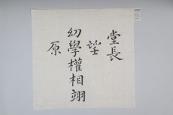 堂長
望
幼學權相翊
原